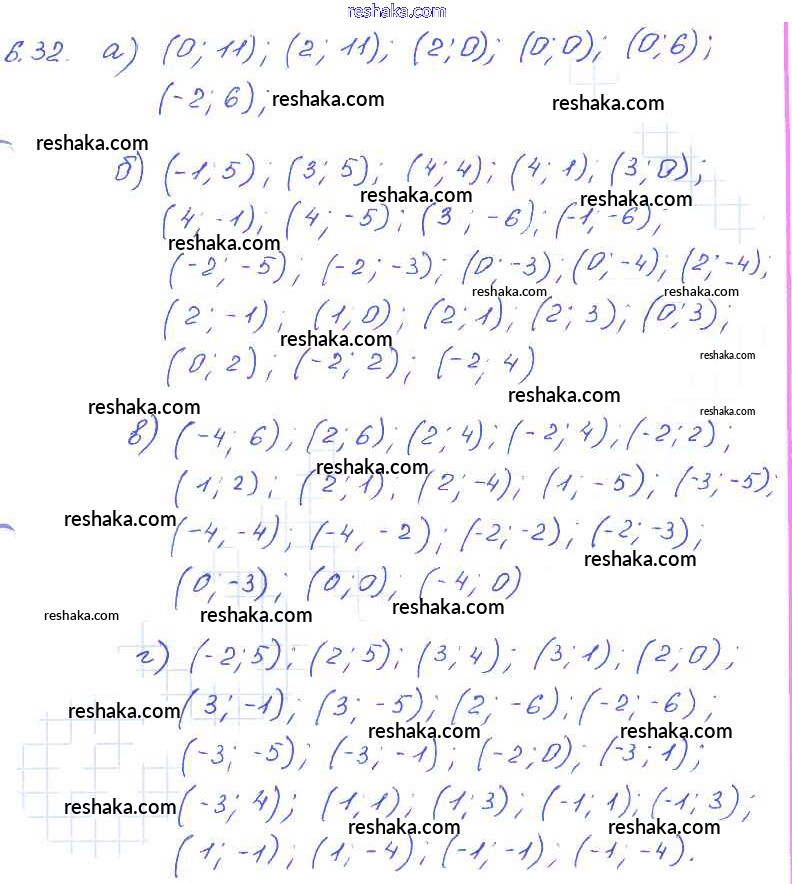 reshaka.com
6.32. а) (0; 11); (2; 11); (2; 0); (0; 0); (0; 6);
(-2; 6); reshaka.com reshaka.com
reshaka.com
б) (-1; 5); (3; 5); (4; 4); (4; 1); (3; 0);
reshaka.com reshaka.com
(4; -1); (4; -5); (3; -6); (-1; -6);
reshaka.com
(-2; -5); (-2; -3); (0; -3); (0; -4); (2; -4);
reshaka.com reshaka.com
(2; -1); (1; 0); (2; 1); (2; 3); (0; 3);
reshaka.com
reshaka.com
(0; 2); (-2; 2); (-2; 4)
reshaka.com
reshaka.com reshaka.com
в) (-4; 6); (2; 6); (2; 4); (-2; 4); (-2; 2);
reshaka.com
(1; 2); (2; 1); (2; -4); (1; -5); (-3; -5);
reshaka.com
(-4, -4); (-4, -2); (-2; -2); (-2; -3);
reshaka.com
(0; -3); (0; 0); (-4; 0)
reshaka.com reshaka.com reshaka.com
г) (-2; 5); (2; 5); (3; 4); (3; 1); (2; 0);
reshaka.com (3; -1); (3; -5); (2; -6); (-2; -6);
reshaka.com reshaka.com
(-3; -5); (-3; -1); (-2; 0); (-3; 1);
reshaka.com (-3; 4); (1; 1); (1; 3); (-1; 1); (-1; 3);
reshaka.com reshaka.com
(1; -1); (1; -4); (-1; -1); (-1; -4).